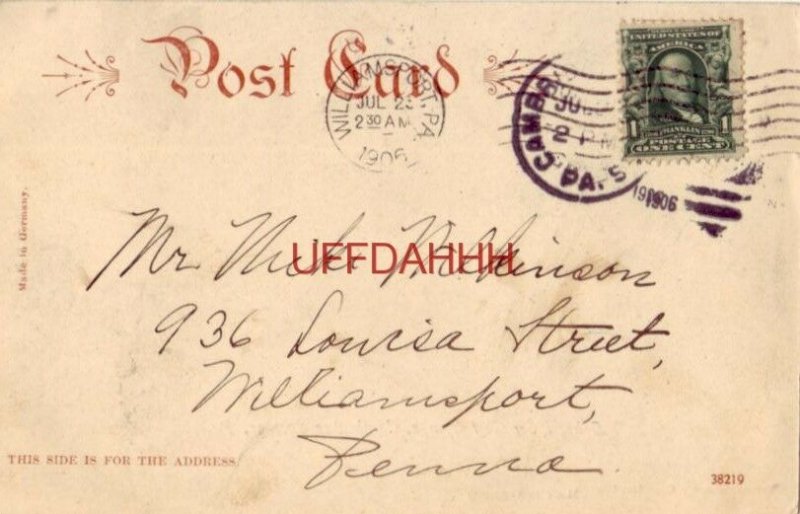 Post Card
WILLIAMSPORT, PA.
JUL 23
2 30 AM
1906
CAMBR
PA.
2 PM
1906
UNITED STATES OF
AMERICA
FRANKLIN
POSTAGE
1 1
ONE CENT
Made in Germany.
Mr
UFFDAHHH
936 Louisa Street,
Williamsport,
Penna.
THIS SIDE IS FOR THE ADDRESS.
38219